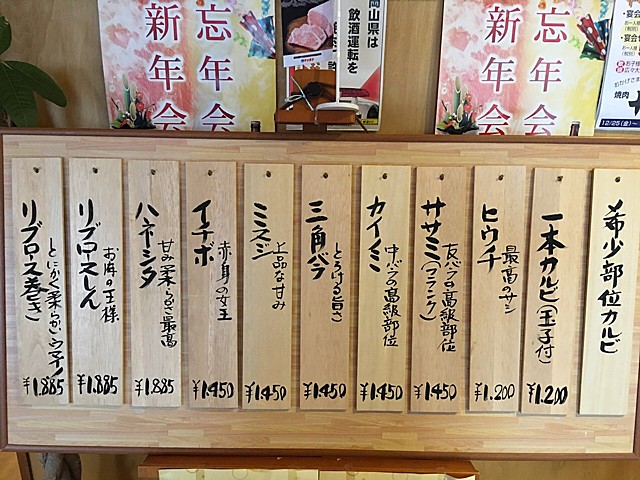 忘年会
新年会
岡山県は
飲酒運転を
忘年会
新年会
焼肉
12/25(金)~
希少部位カルビ
一本カルビ(玉子付)
¥1.200
ヒウチ
最高のサシ
¥1.200
ササミ(フランク)
友バラの高級部位
¥1.450
カイノミ
中バラの高級部位
¥1.450
三角バラ
とろける旨さ
¥1.450
ミスジ
上品な甘み
¥1.450
イチボ
赤身の女王
¥1.450
ハネシタ
甘み柔らかさ最高
¥1.885
リブロースしん
お肉の王様
¥1.885
リブロース巻き)
とにかく柔らかいウマイ!
¥1.885